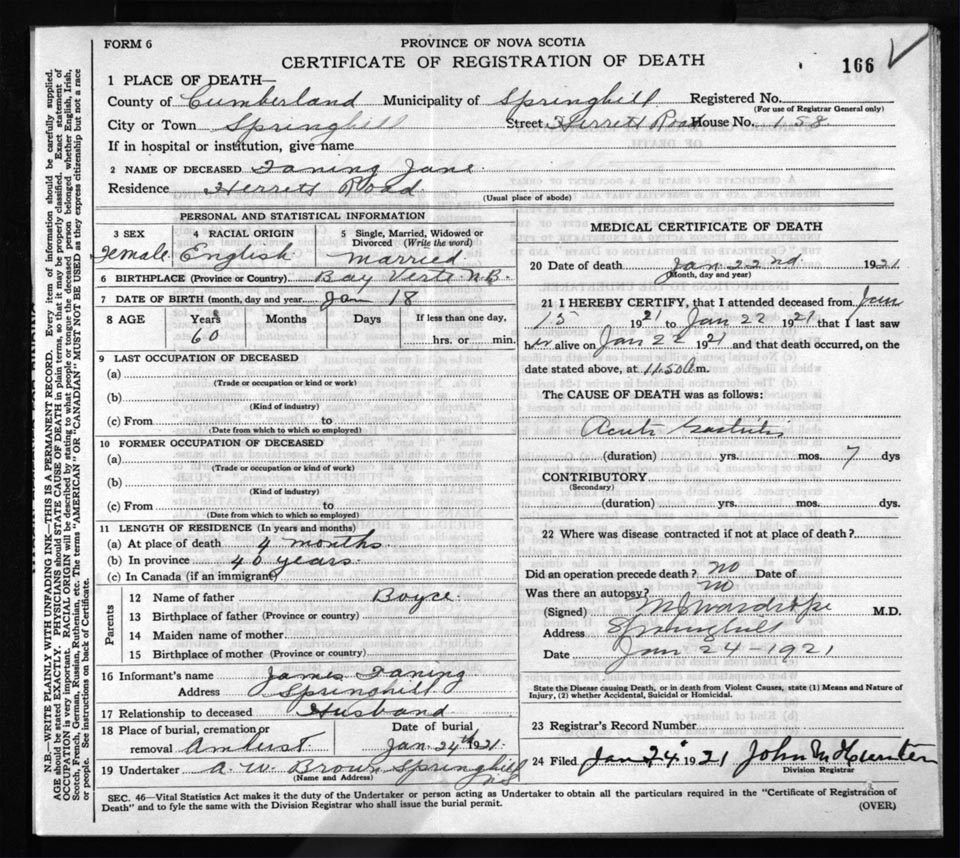 FORM 6
PROVINCE OF NOVA SCOTIA
CERTIFICATE OF REGISTRATION OF DEATH
166
1 PLACE OF DEATH—
County of Cumberland Municipality of Springhill Registered No.
(For use of Registrar General only)
City or Town Springhill Street Herrett Road House No. 158
If in hospital or institution, give name
2 NAME OF DECEASED Faning Jane
Residence Herrett Road
(Usual place of abode)
PERSONAL AND STATISTICAL INFORMATION
3 SEX 4 RACIAL ORIGIN 5 Single, Married, Widowed or Divorced (Write the word)
Female English Married
6 BIRTHPLACE (Province or Country) Bay Verte N.B.
7 DATE OF BIRTH (month, day and year) Jan 18
8 AGE Years Months Days If less than one day,
60 hrs. or min.
9 LAST OCCUPATION OF DECEASED
(a)
(Trade or occupation or kind or work)
(b)
(Kind of industry)
(c) From to
(Date from which to which so employed)
10 FORMER OCCUPATION OF DECEASED
(a)
(Trade or occupation or kind or work)
(b)
(Kind of industry)
(c) From to
(Date from which to which so employed)
11 LENGTH OF RESIDENCE (In years and months)
(a) At place of death 4 months
(b) In province 40 years
(c) In Canada (if an immigrant)
Parents
12 Name of father Boyce
13 Birthplace of father (Province or country)
14 Maiden name of mother
15 Birthplace of mother (Province or country)
16 Informant's name James Faning
Address Springhill
17 Relationship to deceased Husband
18 Place of burial, cremation or removal Amherst Date of burial Jan. 24th 1921.
19 Undertaker A. W. Brown Springhill NS
(Name and Address)
MEDICAL CERTIFICATE OF DEATH
20 Date of death Jan 22nd 1921
(Month, day and year)
21 I HEREBY CERTIFY, that I attended deceased from Jan
15 1921 to Jan 22 1921 that I last saw
her alive on Jan 22 1921 and that death occurred, on the
date stated above, at 11.50 a.m.
The CAUSE OF DEATH was as follows:
Acute Gastritis
(duration) yrs. mos. 7 dys
CONTRIBUTORY
(Secondary)
(duration) yrs. mos. dys.
22 Where was disease contracted if not at place of death?
Did an operation precede death? no Date of
Was there an autopsy? no
(Signed) M J Wardrope M.D.
Address Springhill
Date Jan 24 - 1921
State the Disease causing Death, or in death from Violent Causes, state (1) Means and Nature of
Injury, (2) whether Accidental, Suicidal or Homicidal.
23 Registrar's Record Number
24 Filed Jan 24 1921 John M Hunter
Division Registrar
SEC. 46—Vital Statistics Act makes it the duty of the Undertaker or person acting as Undertaker to obtain all the particulars required in the "Certificate of Registration of
Death" and to fyle the same with the Division Registrar who shall issue the burial permit.
(OVER)
N.B.—WRITE PLAINLY WITH UNFADING INK—THIS IS A PERMANENT RECORD. Every item of information should be carefully supplied.
AGE should be stated EXACTLY. PHYSICIANS should STATE CAUSE OF DEATH in plain terms, so that it may be properly classified. Exact statement of
OCCUPATION is very important. RACIAL ORIGIN will be described by stating to what people or tongue the deceased person belonged whether English, Irish,
Scotch, French, German, Russian, Ruthenian, etc. The terms "AMERICAN" OR "CANADIAN" MUST NOT BE USED as they express citizenship but not a race
or people. See instructions on back of Certificate.